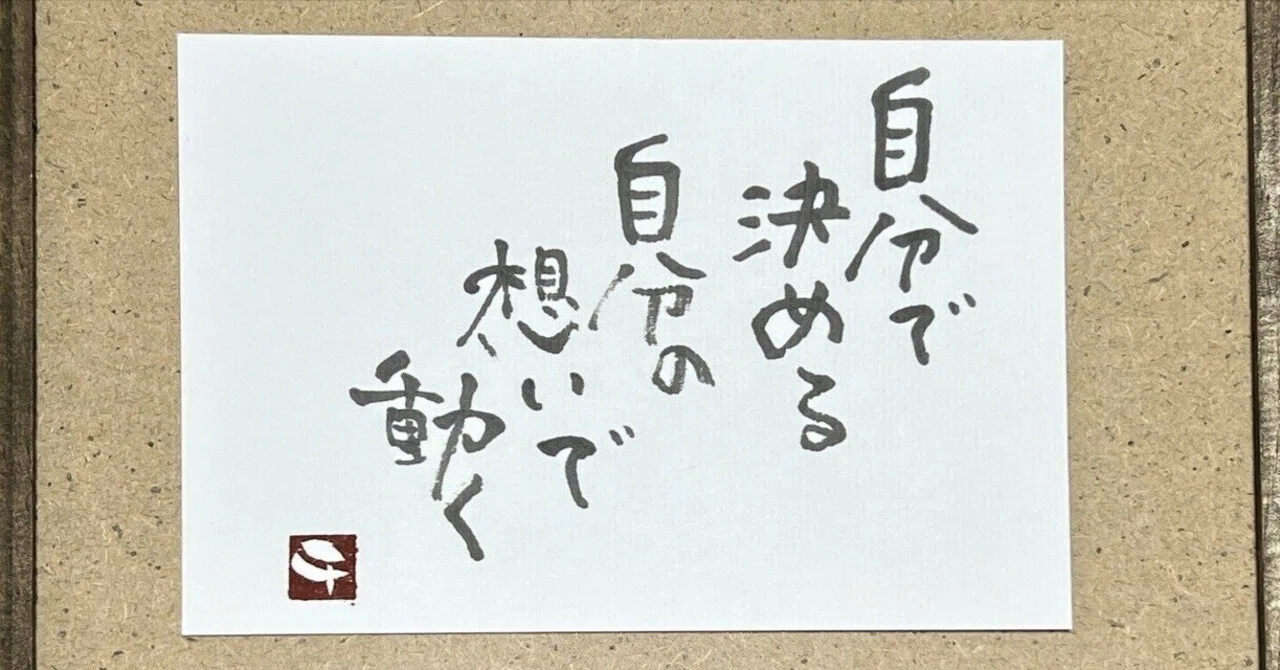 自分で
決める
自分の
想いで
動く